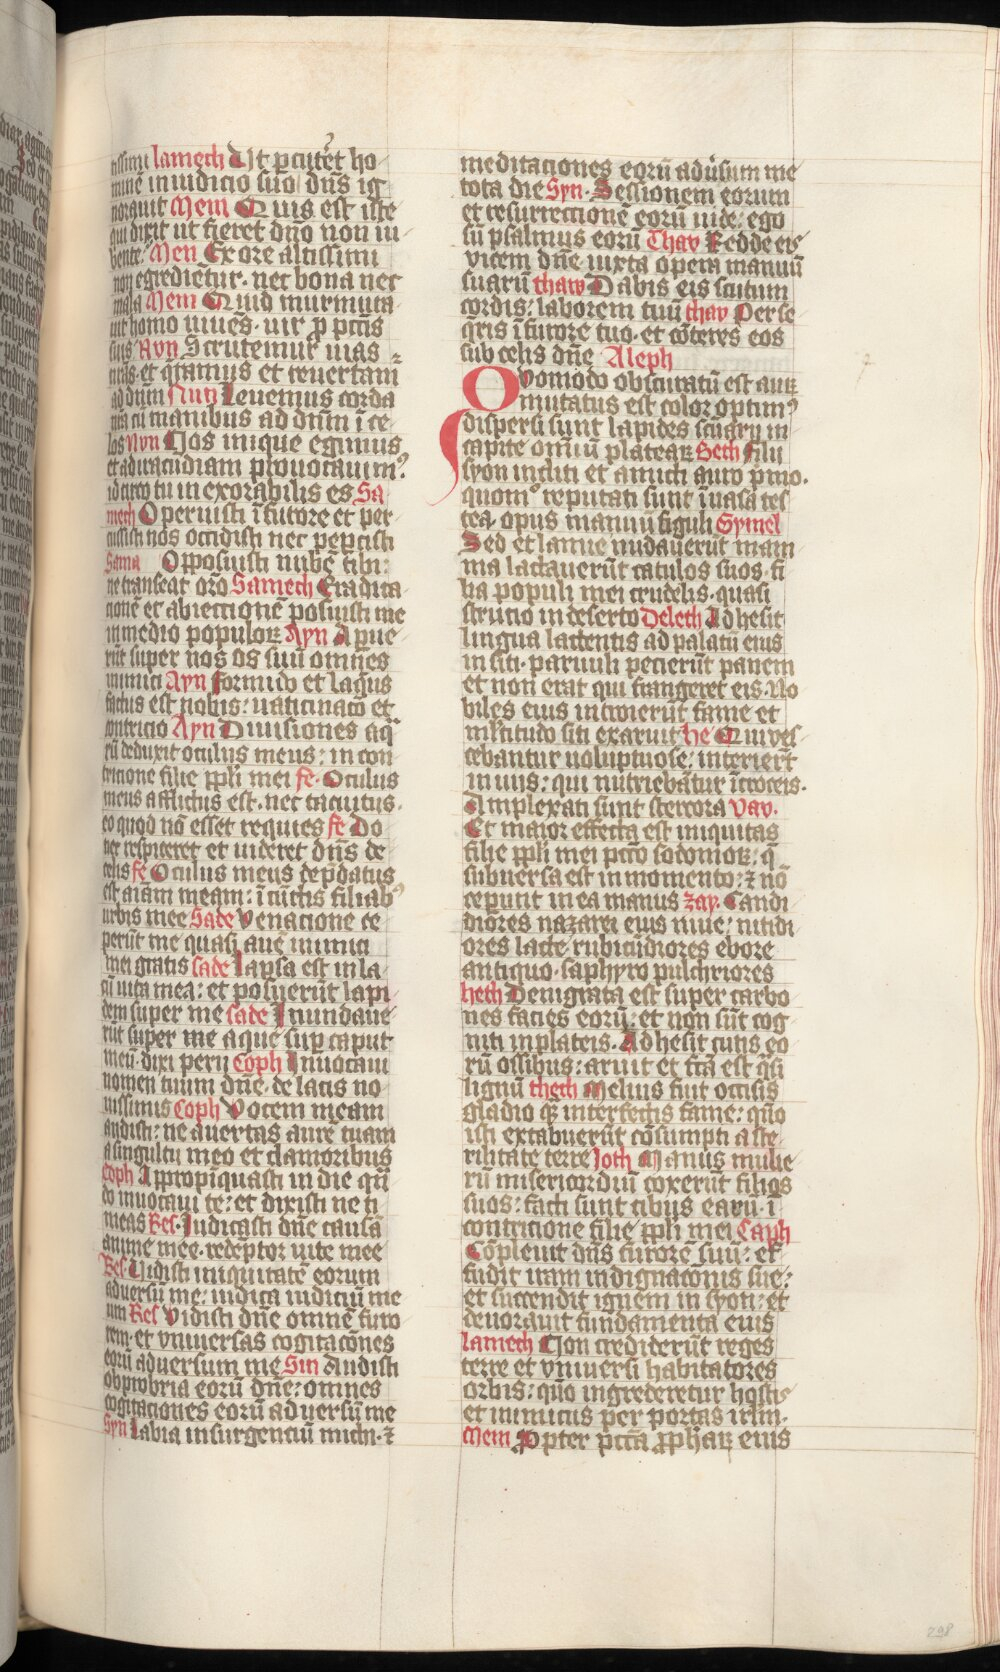 tissimi lamech Ut ꝑcut̾et ho
minē in iudicio suo dn̄s ig
norauit Mem Quis est iste
qui dixit ut fieret dn̄o non iu
bente: Men Ex ore altissimi
non egrediet̄ur. nec bona nec
mala Mem Quid murmura
uit homo uiuēs. uir ꝓ pctīs
suis Nvn Scrutemur uias
nr̄as. et q̄ramus et reuertam̄
ad dn̄m Nun Leuemus corda
nr̄a cū manibus ad dn̄m ī ce
los Nvn Nos inique egimus
et ad iracūdiam prouocauimꝰ
idcirco tu in exorabilis es Sa
mech Operuisti ī furore et per
cussisti nos occidisti nec peꝑcisti
Sama Opposuisti nubē tibi:
ne transeat or̄o Samech Eradica
cionē et abiectionē posuisti me
in medio populoꝝ Ayn Apue
rūt super nos os suū omnes
inimici Ayn Formido et laqus
factus est nobis: uaticinac̄o et
contricio Ayn Diuisiones aq̄
rū deduxit oculus meus: in con
tricione filie ppl̄i mei fe. Oculus
meus afflictus est. nec tacuitus.
eo quod nō esset requies fe Do
nec respiceret et uideret dn̄s de
celis fe Oculus meus depdatus
est aīam meam: ī cūctis filiabꝰ
urbis mee Sade Venacione ce
perūt me quasi auē inimici
mei gratis sade Lapsa est in la
cū uita mea: et posuerūt lapi
dem super me sade Inundaue
rūt super me aque suꝑ caput
meū. dixi perii Coph Inuocaui
nomen tuum dn̄e. de lacis no
uissimis Coph Vocem meam
audisti: ne auertas aurē tuam
a singultu meo et clamoribus
Coph Appropinquasti in die qn̄
do inuocaui te: et dixisti ne ti
meas Res. Iudicasti dn̄e causā
anime mee. redēptor uite mee
Res Uidisti iniquitatē eorum
aduersū me: iudica iudiciū me
um Res Vidisti dn̄e omnē furo
rem. et vniuersas cogitac̄ones
eorū aduersum me Sin Audisti
obprobria eorū dn̄e: omnes
cogitaciones eorū aduersū me
Syn Labia insurgenciū michi. ⁊
meditaciones eorū adu̾sum me
tota die Syn. Sessionem eorum
et resurrectionē eorū uide: ego
sū psalmus eorū Thav Redde eis
vicem dn̄e iuxta opera manuū
suarū thaw Dabis eis scutum
cordis: laborem tuū thav Perse
q̄ris ī furore tuo. et cōteres eos
sub celis dn̄e Aleph
Qvomodo obscuratū est auꝝ
mutatus est color optimꝰ
dispersi sunt lapides scūarū in
capite omīū plateaꝝ Beth filii
syon incliti et amicti auro p̄mo.
quomo reputati sunt ī uasa tes
tea. opus manuū figuli Gymel
Sed et lamie nudauerūt mam
ma lactauerūt catulos suos. fi
lia populi mei crudelis. quasi
strucio in deserto Deleth Adhesit
lingua lactentis ad palatū eius
in siti. paruuli pecierūt panem
et non erat qui frangeret eis. No
biles eius introierūt fame et
milꝰtitudo siti exaruit he Qui ves
cebantur uoluptuose: interierūt
in uiis: qui nutriebāt̄ur ī croceis.
Amplexati sunt stercora Vav.
Et maior effecta est iniquitas
filie ppl̄i mei pctō sodomoꝝ: q̄
subuersa est in momento: ⁊ nō
ceperunt in ea manus zay. Candi
diores nazarei eius niue: nitidi
ores lacte rubicūdiores ebore
antiquo. saphyro pulchriores
heth Denigrata est super carbo
nes facies eorū: et non sūt cog
niti in plateis. Adhesit cutis eo
rū ossibus: aruit et fctā est q̄si
lignū theth Melius fuit occisis
gladio q̄ interfectis fame: qn̄o
isti extabuerūt cōsumpti a ste
rilitate terre Ioth Manus mulie
rū misericordiū coxerūt filios
suos: facti sunt cibus earū. ī
contricione filie ppl̄i mei Caph
Cōpleuit dn̄s furorē suū: ef
fudit iram indignac̄onis sue:
et succendit ignem in syon: et
deuorauit fundamenta eius
lamech Non crediderūt reges
terre et vniuersi habitatores
orbis: qn̄o ingrederetur hostis
et inimicus per portas irlm̄.
Mem Propter pctā ꝓphaꝝ eius
298